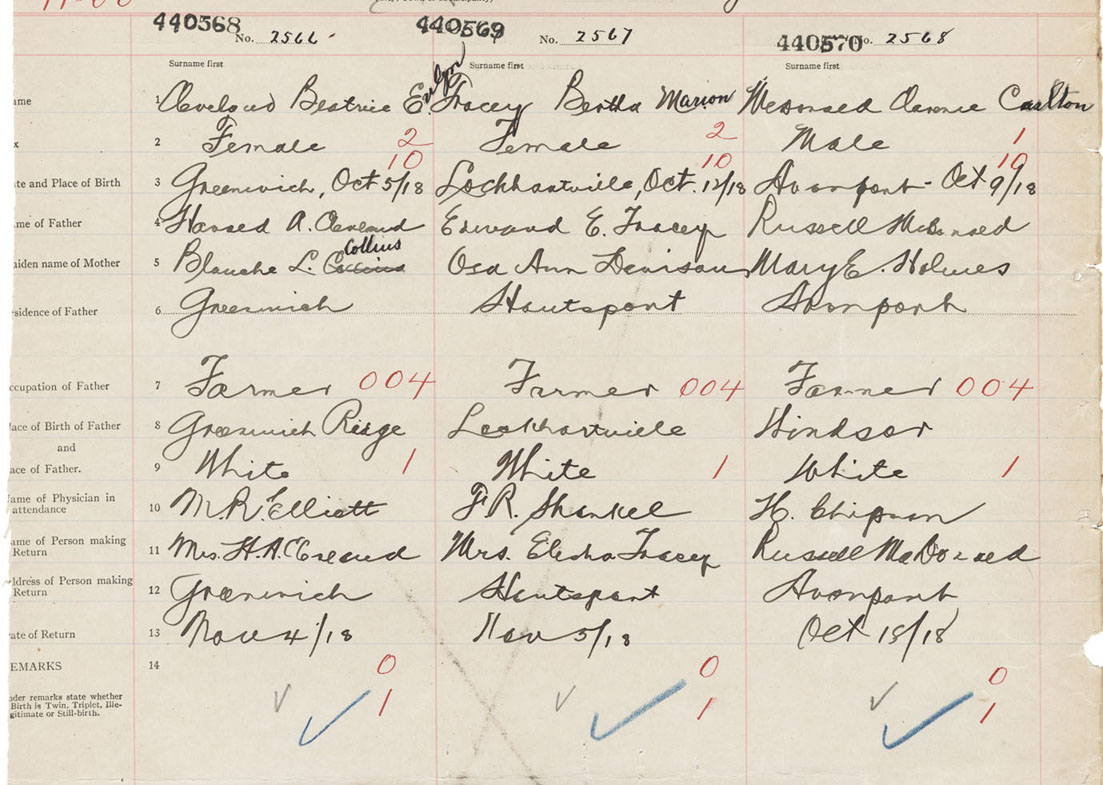 440568 No. 2566 440569 No. 2567 440570 No. 2568
Surname first Surname first Surname first
ame 1 Cleveland Beatrice Evelyn Tracey Bertha Marion McDonald Clarence Carlton
x 2 Female 2 Female 2 Male 1
10 10 10
ate and Place of Birth 3 Greenwich, Oct 5/18 Lockhartville, Oct. 12/18 Avonport - Oct 9/18
me of Father 4 Harold A. Cleveland Edward E. Tracey Russell McDonald
aiden name of Mother 5 Blanche L. Collins Oca Ann Davison Mary E. Holmes
sidence of Father 6 Greenwich Hantsport Avonport
ccupation of Father 7 Farmer 004 Farmer 004 Farmer 004
lace of Birth of Father 8 Greenwich Ridge Lockhartville Windsor
and
ace of Father. 9 White 1 White 1 White 1
Name of Physician in
attendance 10 M.R. Elliott F.R. Shankel H. Chipman
ame of Person making
Return 11 Mrs. H.A. Cleveland Mrs. Elisha Tracey Russell MacDonald
ddress of Person making
Return 12 Greenwich Hantsport Avonport
ate of Return 13 Nov 4/18 Nov 5/18 Oct 18/18
EMARKS 14 0 0 0
nder remarks state whether
Birth is Twin, Triplet, Ille-
gitimate or Still-birth. 1 1 1